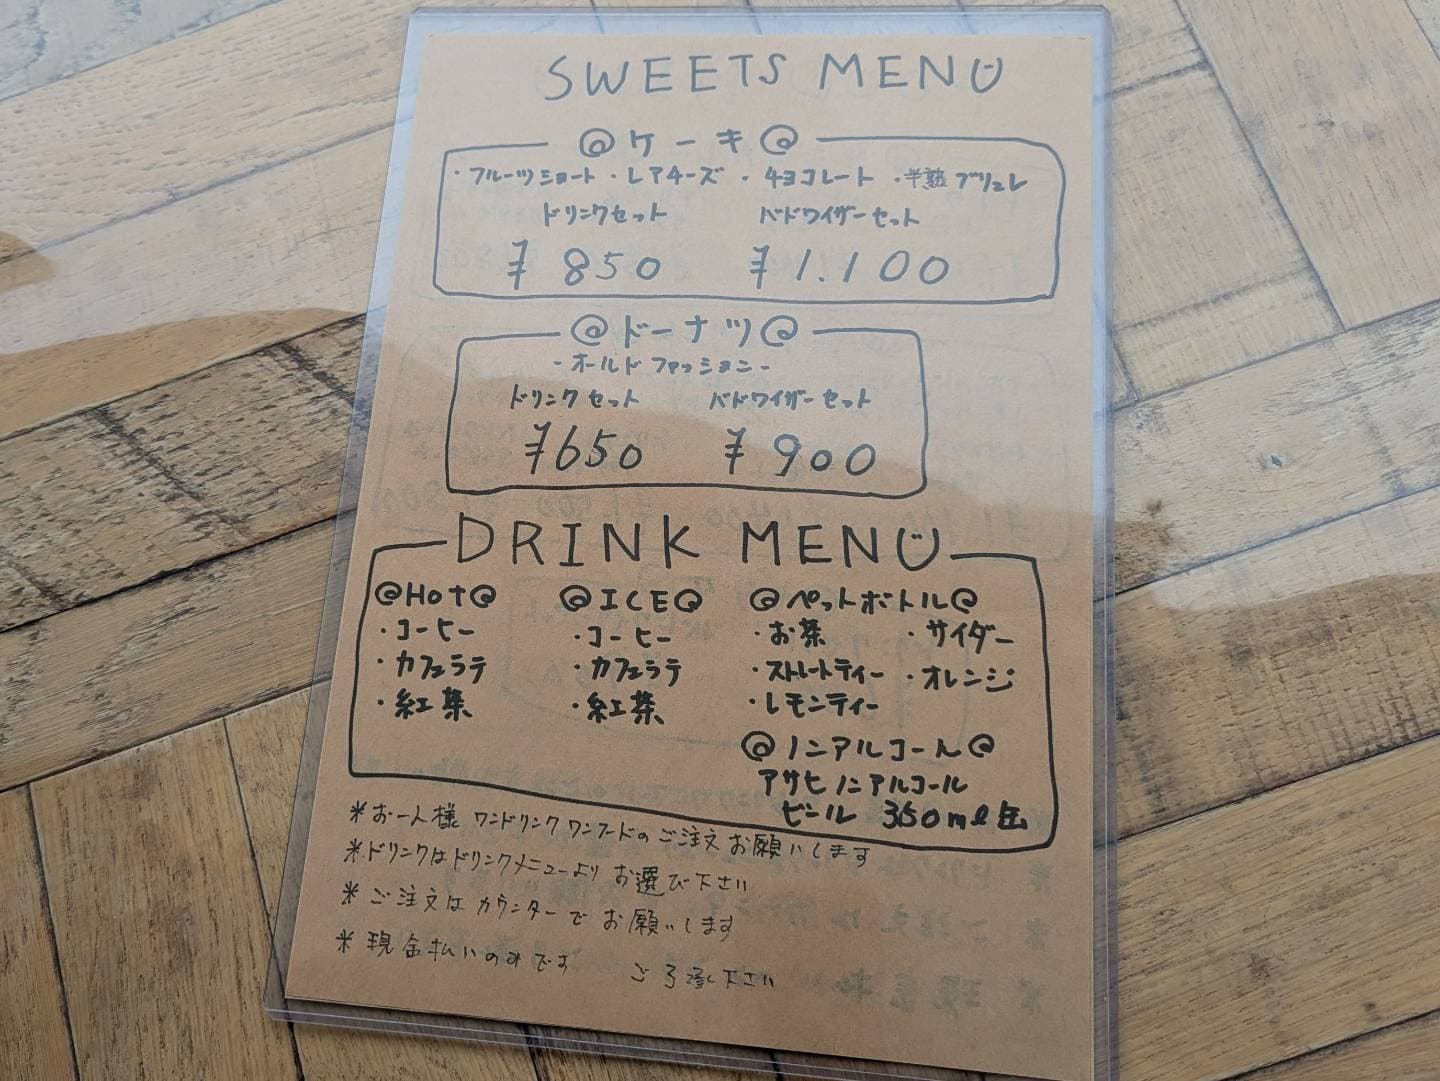 SWEETS MENU
@ケーキ@
・フルーツショート ・レアチーズ ・チョコレート ・半熟ブリュレ
ドリンクセット バドワイザーセット
¥850 ¥1.100
@ドーナツ@
-オールドファッション-
ドリンクセット バドワイザーセット
¥650 ¥900
DRINK MENU
@HOT@ @ICE@ @ペットボトル@
・コーヒー ・コーヒー ・お茶 ・サイダー
・カフェラテ ・カフェラテ ・ストレートティー ・オレンジ
・紅茶 ・紅茶 ・レモンティー
@ノンアルコール@
アサヒノンアルコール
ビール 350ml缶
*お一人様ワンドリンクワンフードのご注文お願いします
*ドリンクはドリンクメニューよりお選び下さい
*ご注文はカウンターでお願いします
*現金払いのみです ご了承下さい